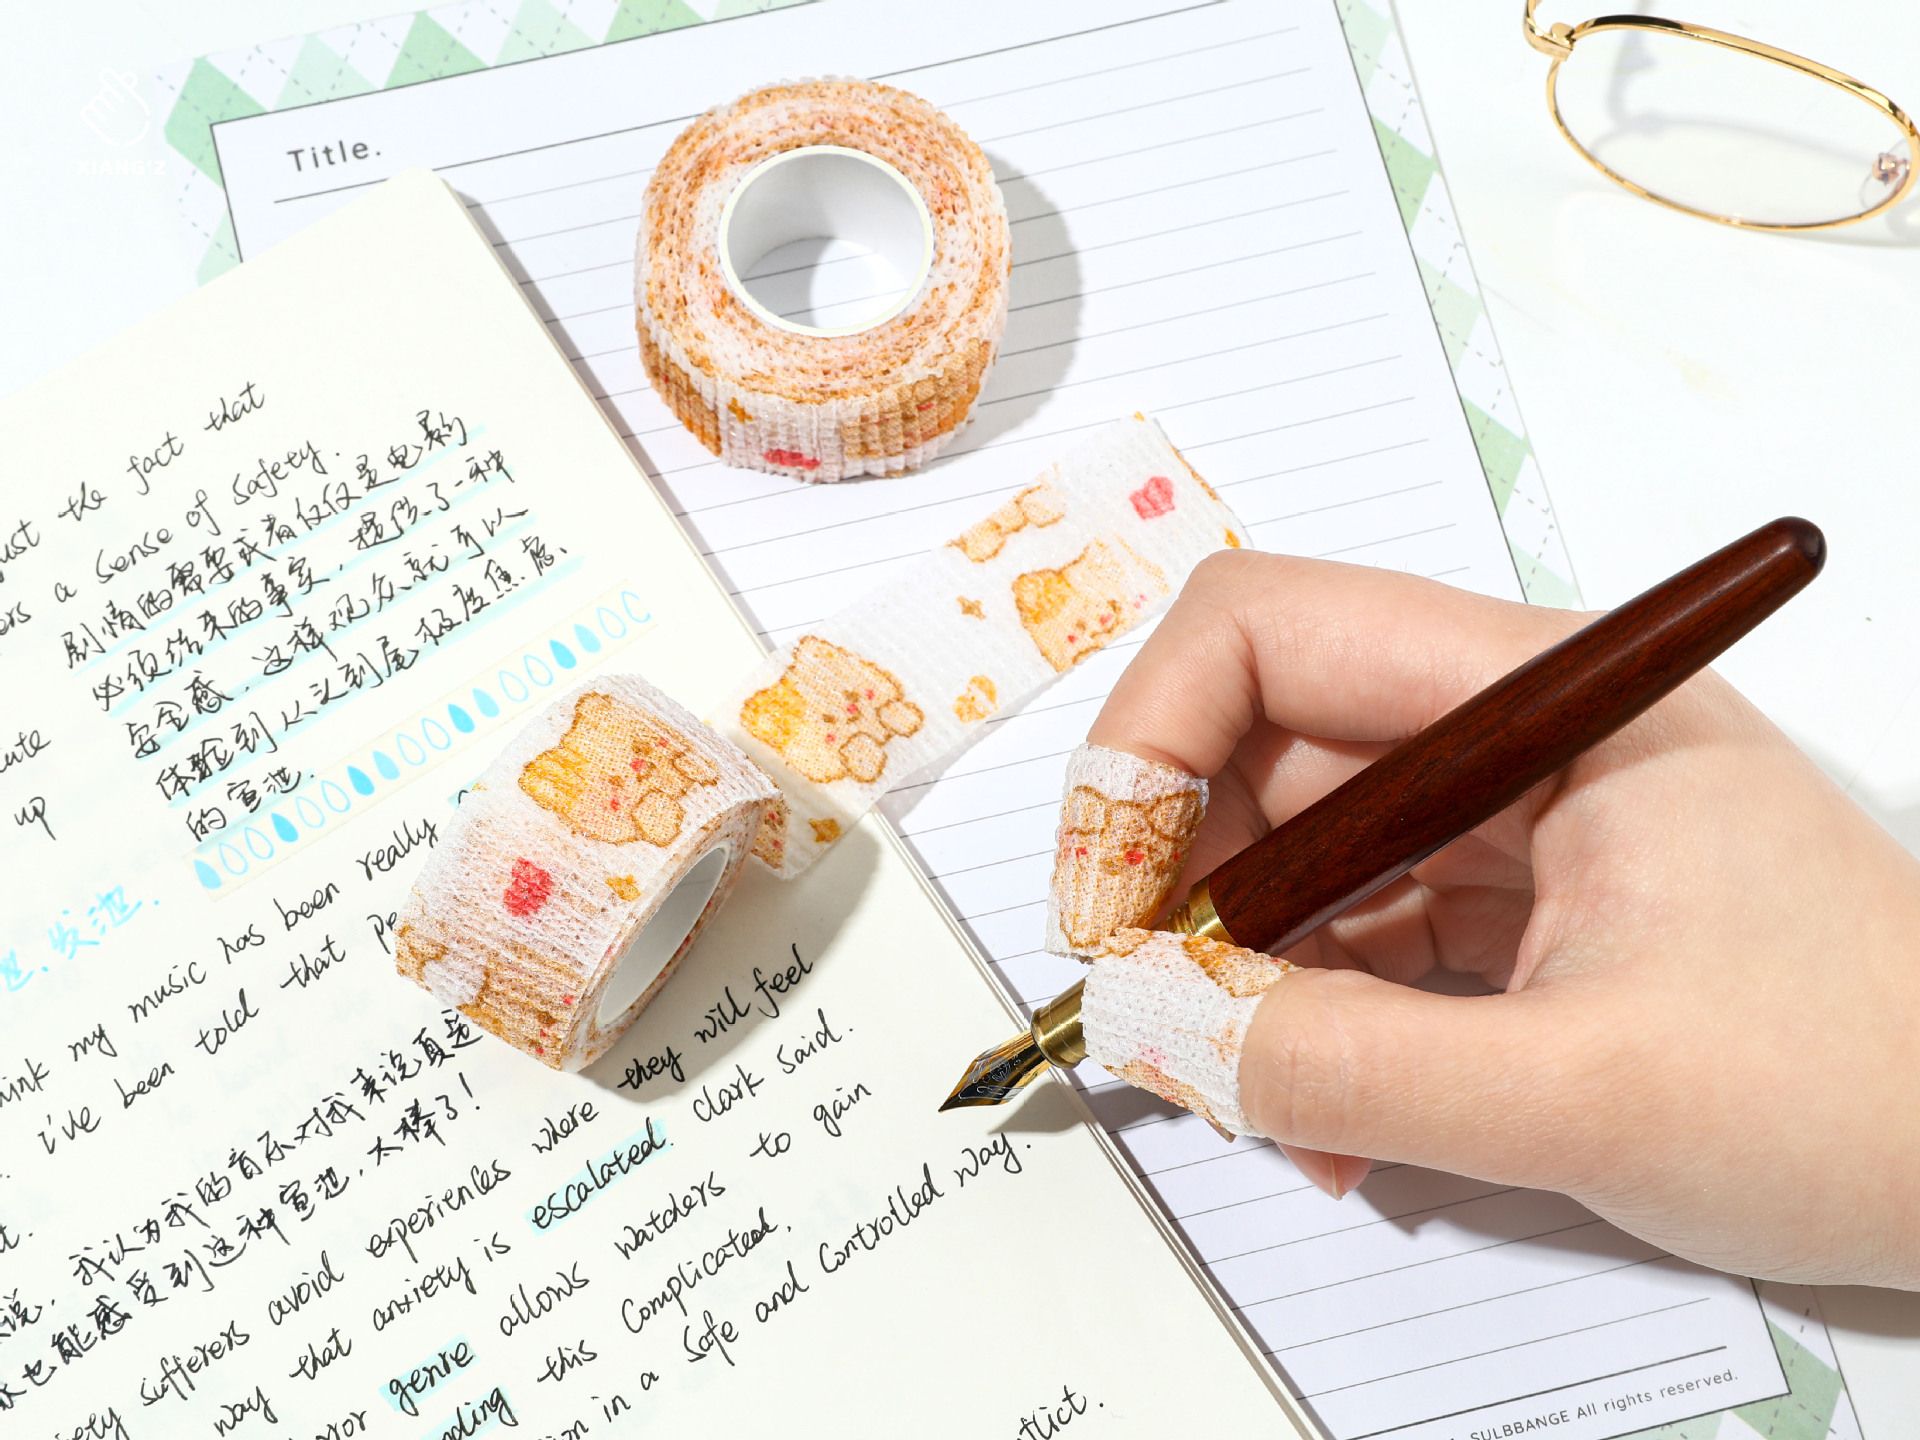 XIANG'Z
Title.
just the fact that
ers a sense of safety.
剧情的需要或者仅仅是电影
必须结束的事实，提供了一种
安全感，这样观众就可以
体验到从头到尾极度焦虑
的宣泄.
cute
up
泄.发泄.
think my music has been really
i've been told that pe
they will feel
我认为我的音乐对我来说真是
也能感受到这种宣泄,太棒了!
iety sufferers avoid experiences where
way that anxiety is escalated. Clark said.
rror genre allows watchers to gain
nding this complicated,
ion in a safe and controlled way.
nflict.
SULBBANGE All rights reserved.